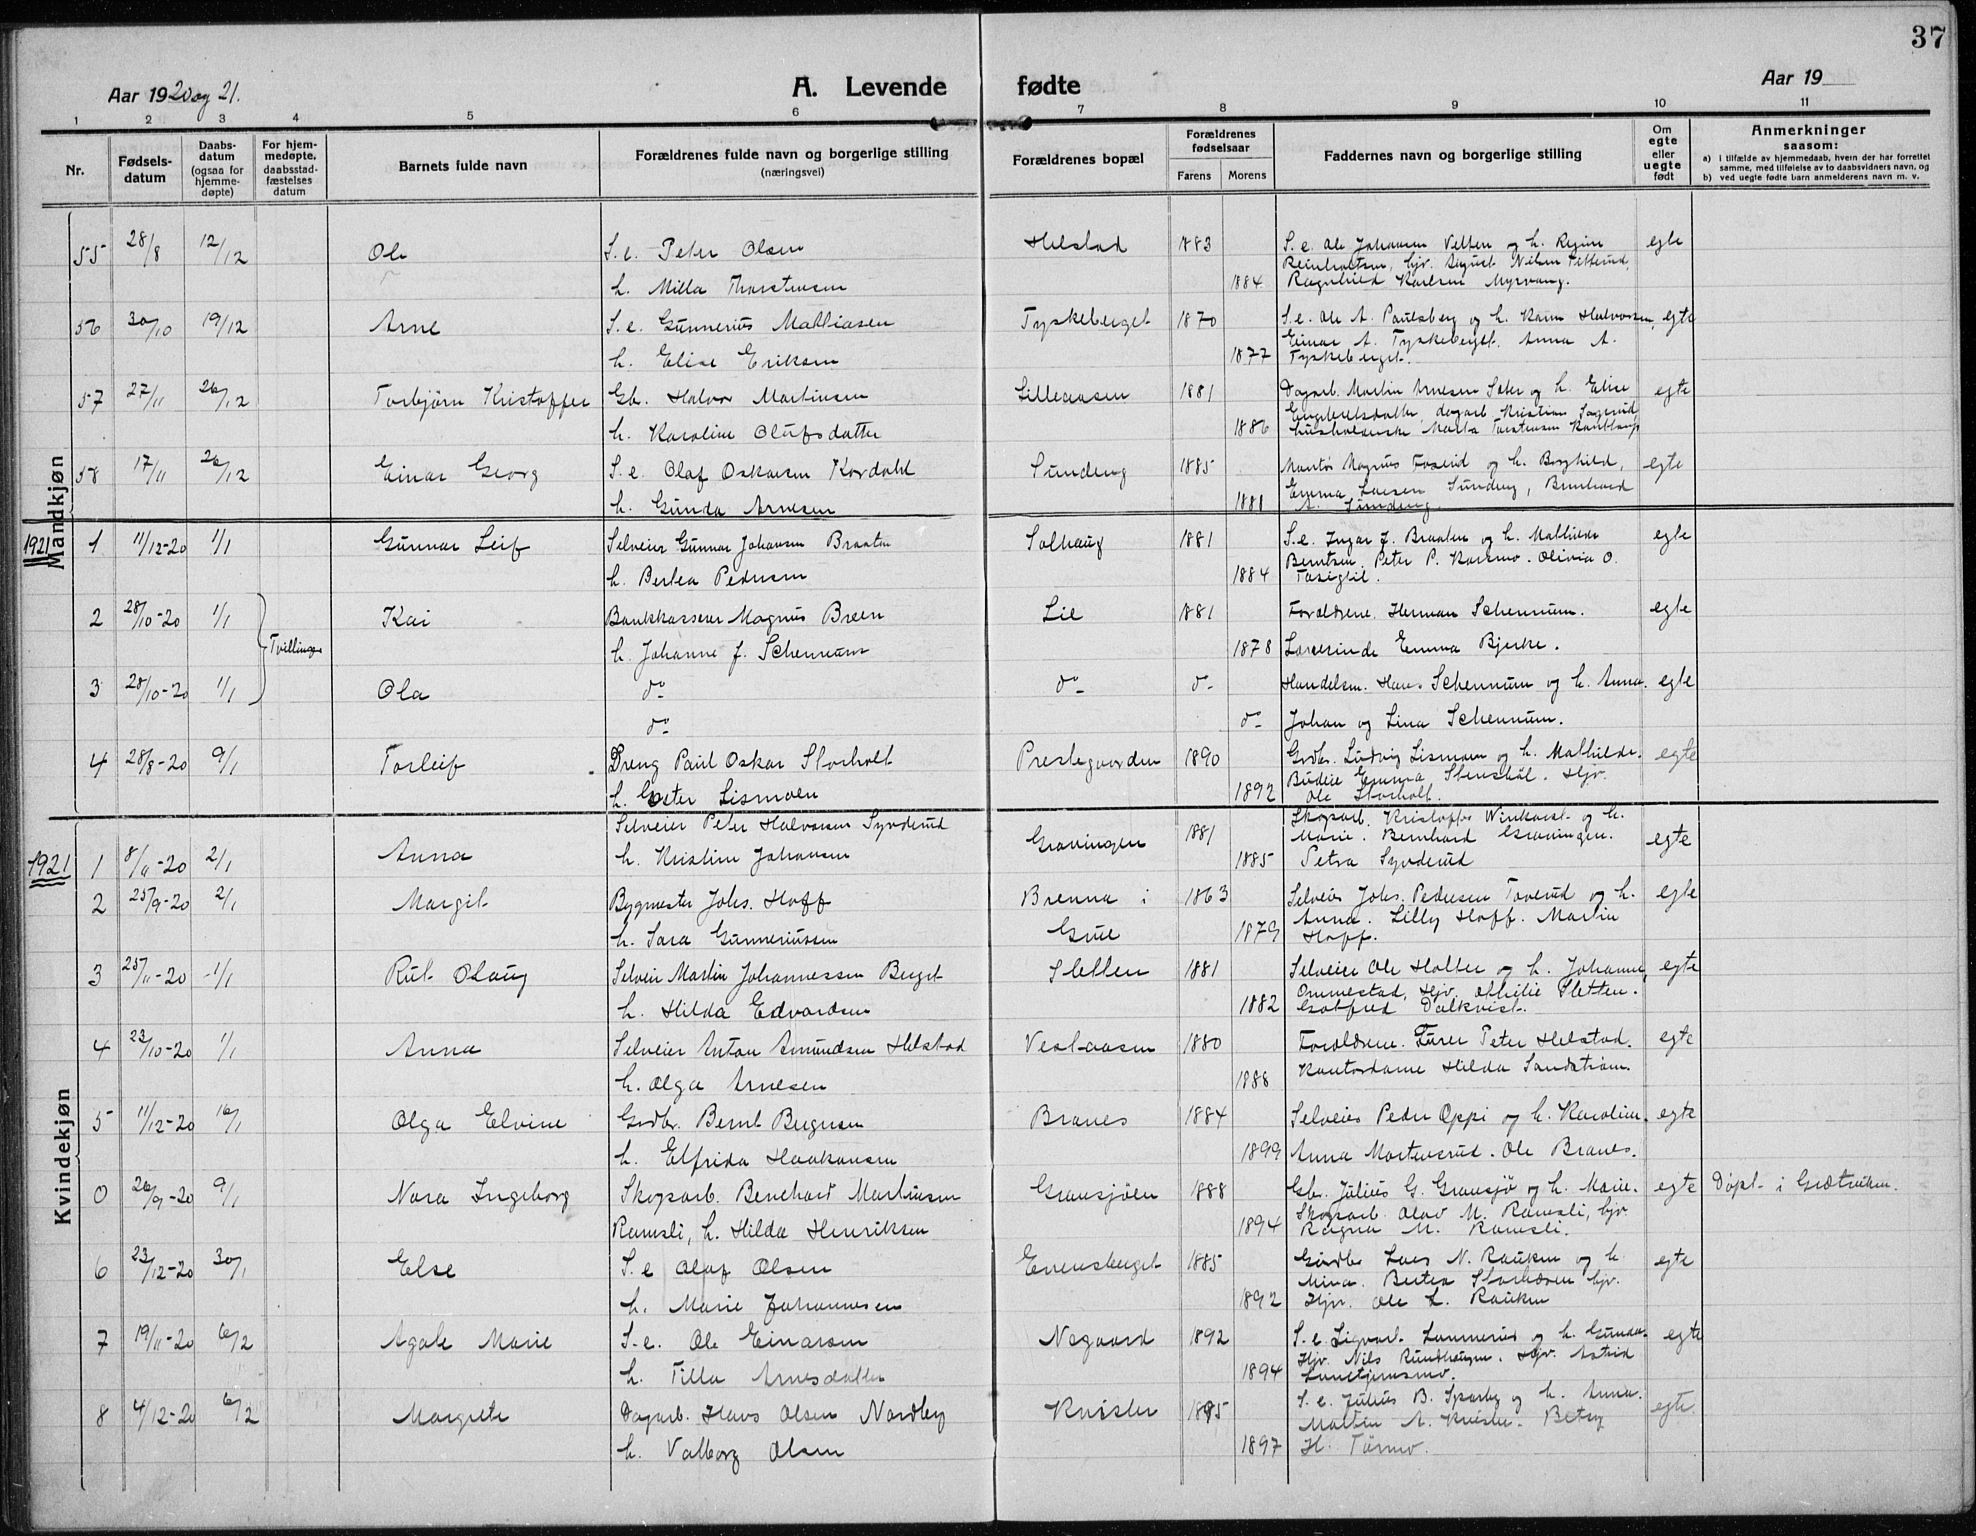 37
Aar 1920 og 21.
A. Levende fødte
Aar 19
1 2 3 4 5 6 7 8 9 10 11
Nr.
Fødsels-datum
Daabs-datum (ogsaa for hjemme-døpte)
For hjem-medøpte, daabsstad-fæstelses datum
Barnets fulde navn
Forældrenes fulde navn og borgerlige stilling (næringsvei)
Forældrenes bopæl
Forældrenes fødselsaar
Farens Morens
Faddernes navn og borgerlige stilling
Om egte eller uegte født
Anmerkninger saasom:
a) i tilfælde av hjemmedaab, hvem der har forrettet samme, med tilføielse av to daabsvidners navn, og
b) ved uegte fødte barn anmelderens navn m. v.
Mandkjøn
55 28/8 12/12 Ole S. e. Peter Olsen Helstad 1883 S. e. Ole Johansen Velten og h. Regine egte
Reinholtsen, hjv. August Nilsen
h. Milla Thorstensen 1884 Ragnhild Karlsen Myrvang.
56 30/10 19/12 Arne S. e. Gunnerius Mathiasen Tyskeberget 1870 S. e. Ole A. Paulsberg og h. Karen Halvorsen, egte
Einar A. Tyskeberget. Anna A.
h. Elise Eriksen 1877 Tyskeberget.
57 27/11 26/12 Torbjørn Kristoffer Gb. Halvor Martinsen Lilleaasen 1881 Dagarb. Martin Arnesen Sæter og h. Elise egte
Engebretsdatter, dagarb Kristian Sagerud,
h. Karoline Olufsdatter 1886 Marta Torstensen
58 17/11 26/12 Einar Georg S. e. Olaf Oskarsen Kordahl Sundeng 1885 Magnus Fosseid og h. Borghild, egte
Emma Larsen Sundeng, Bernhard
h. Gunda Arnesen 1881 A. Sundeng.
1921 1 11/12-20 1/1 Gunnar Leif Selveier Gunnar Johansen Braaten Solhaug 1881 S. e. Ingar J. Braaten og h. Mathilde egte
Berntsen. Peter P. Karsmo. Olivia O.
h. Bertea Pedersen 1884
2 28/10-20 1/1 Tvillinger Kai Bankkasserer Magnus Breen Lie 1881 Forældrene. Herman Schennum. egte
h. Johanne J. Schennum 1878 Lærerinde Emma Bjerke.
3 28/10-20 1/1 Ola do do do Handelsm. Hans Schennum og h. Anna. egte
do do Johan og Lina Schennum.
4 28/8-20 9/1 Torleif Dreng Paul Oskar Storholt Prestegaarden 1890 Grdbr. Ludvig Lismoen og h. Mathilde. egte
Budeie Emma Stenshol. Hjv.
h. Lismoen 1892 Ole Storholt.
Kvindekjøn
1921 1 8/11-20 2/1 Anna Selveier Peter Halvorsen Synderud Gravingen 1881 Skogsarb. Kristoffer og h.
Marie. Bernhard Gravingen. egte
h. Kristine Johansen 1885 Petra Synderud
2 25/9-20 2/1 Margit Bygmester Johs. Hoff Brenna i 1863 Selveier Johs. Pedersen Toverud og h. egte
Anna. Lilly Hoff. Martin
h. Sara Gunneriussen Grue 1879 Hoff.
3 25/11-20 1/1 Rut Olaug Selveier Martin Johannessen Berget Sletten 1881 Selveier Ole Holter og h. Johanne, egte
Ommestad, Hjv. Othilie Sletten.
h. Hilda Edvardsen 1882 Gotfred Dalkvist.
4 23/10-20 1/1 Anna Selveier Anton Amundsen Helstad Vestaasen 1880 Forældrene. Furer Peter Helstad. egte
h. Olga Arnesen 1888 Kontordame Hilda Sandstrøm.
5 11/12-20 16/1 Olga Elvine Grdbr. Bernt Bergersen Branes 1884 Selveier Peder Oppi og h. Karoline. egte
h. Elfrida Haakonsen 1899 Anna Mortensrud. Ole Branes.
0 26/9-20 9/1 Nora Ingeborg Skogsarb. Bernhard Martinsen Gransjøen 1888 Gb. Julius G. Gransjø og h. Marie. egte Døpt i Grætviken.
Skogsarb. Olav M. Ramsli, hjv.
Ramsli, h. Hilda Henriksen 1894 Ragna M. Ramsli.
6 23/12-20 30/1 Else S. e Olaf Olsen Evensberget 1885 Grdbr Lars N. Rauken og h egte
Mina. Bertea hjv.
h. Marie Johannesen 1892 Hjv. Ole L. Rauken
7 19/11-20 6/2 Agate Marie S. e. Ole Einarsen Nøgaard 1892 S. e. og h. Gunda. egte
Hjv. Nils Rundhaugen. Hjv. Astrid
h. Tilla Arnesdatter 1894
8 4/12-20 6/2 Margrete Dagarb. Hans Olsen Nordby Kvisler 1895 S. e. Julius B. Sparby og h. Anna. egte
A. Kvisler. Betsy
h. Valborg Olsen 1897 H. Tørmo.